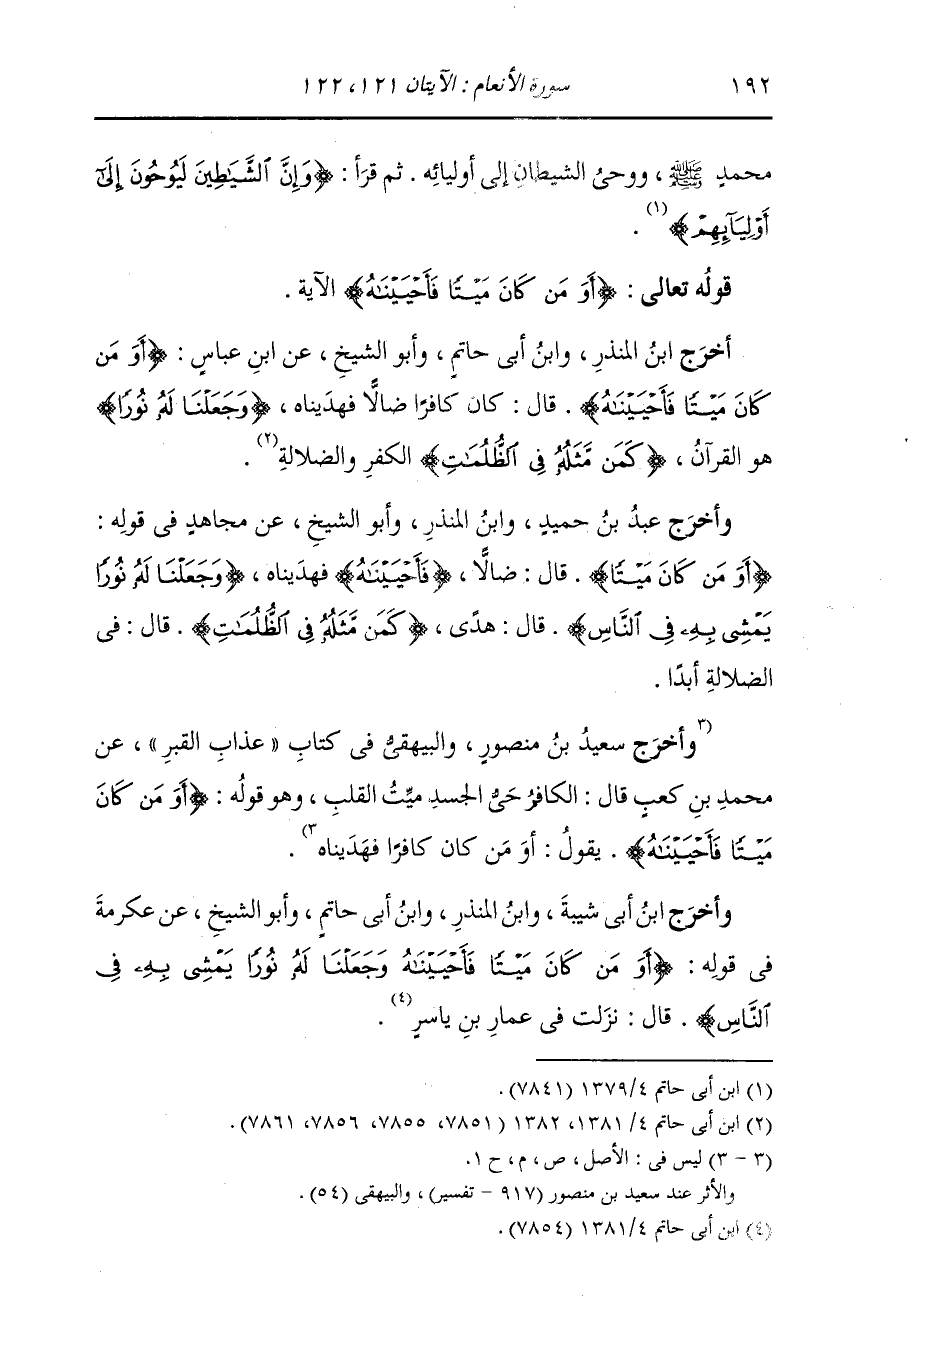 ١٩٢ سورة الأنعام : الآيتان ١٢١ ، ١٢٢
محمدٍ ﷺ ، ووحىُ الشيطانِ إلى أوليائِه . ثم قرَأ : ﴿وَإِنَّ ٱلشَّيَٰطِينَ لَيُوحُونَ إِلَىٰٓ
أَوْلِيَآئِهِمْ﴾ (١) .
قولُه تعالى : ﴿أَوَ مَن كَانَ مَيْتًا فَأَحْيَيْنَٰهُ﴾ الآية .
أخرَج ابنُ المنذرِ ، وابنُ أبى حاتمٍ ، وأبو الشيخِ ، عن ابنِ عباسٍ : ﴿أَوَ مَن
كَانَ مَيْتًا فَأَحْيَيْنَٰهُ﴾ . قال : كان كافرًا ضالًّا فهدَيناه ، ﴿وَجَعَلْنَا لَهُۥ نُورًا﴾
هو القرآنُ ، ﴿كَمَن مَّثَلُهُۥ فِى ٱلظُّلُمَٰتِ﴾ الكفرِ والضلالةِ (٢) .
وأخرَج عبدُ بنُ حميدٍ ، وابنُ المنذرِ ، وأبو الشيخِ ، عن مجاهدٍ فى قولِه :
﴿أَوَ مَن كَانَ مَيْتًا﴾ . قال : ضالًّا ، ﴿فَأَحْيَيْنَٰهُ﴾ فهدَيناه ، ﴿وَجَعَلْنَا لَهُۥ نُورًا
يَمْشِى بِهِۦ فِى ٱلنَّاسِ﴾ . قال : هدًى ، ﴿كَمَن مَّثَلُهُۥ فِى ٱلظُّلُمَٰتِ﴾ . قال : فى
الضلالةِ أبدًا .
(٣ وأخرَج سعيدُ بنُ منصورٍ ، والبيهقىُّ فى كتابِ « عذابِ القبرِ » ، عن
محمدِ بنِ كعبٍ قال : الكافرُ حَىُّ الجسدِ ميِّتُ القلبِ ، وهو قولُه : ﴿أَوَ مَن كَانَ
مَيْتًا فَأَحْيَيْنَٰهُ﴾ . يقولُ : أوَ مَن كان كافرًا فهَدَيناه ٣) .
وأخرَج ابنُ أبى شيبةَ ، وابنُ المنذرِ ، وابنُ أبى حاتمٍ ، وأبو الشيخِ ، عن عكرمةَ
فى قولِه : ﴿أَوَ مَن كَانَ مَيْتًا فَأَحْيَيْنَٰهُ وَجَعَلْنَا لَهُۥ نُورًا يَمْشِى بِهِۦ فِى
ٱلنَّاسِ﴾ . قال : نزَلت فى عمارِ بنِ ياسرٍ (٤) .
(١) ابن أبى حاتم ١٣٧٩/٤ (٧٨٤١) .
(٢) ابن أبى حاتم ٤/ ١٣٨١، ١٣٨٢ ( ٧٨٥١، ٧٨٥٥، ٧٨٥٦، ٧٨٦١) .
(٣ - ٣) ليس فى : الأصل ، ص ، م ، ح ١.
والأثر عند سعيد بن منصور (٩١٧ - تفسير) ، والبيهقى (٥٤) .
(٤) ابن أبى حاتم ١٣٨١/٤ (٧٨٥٤) .